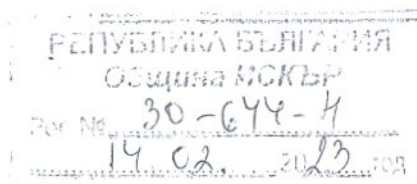 РЕПУБЛИКА БЪЛГАРИЯ
Община ИСКЪР
Рег. № 30-644-4
14.02. 2023 год